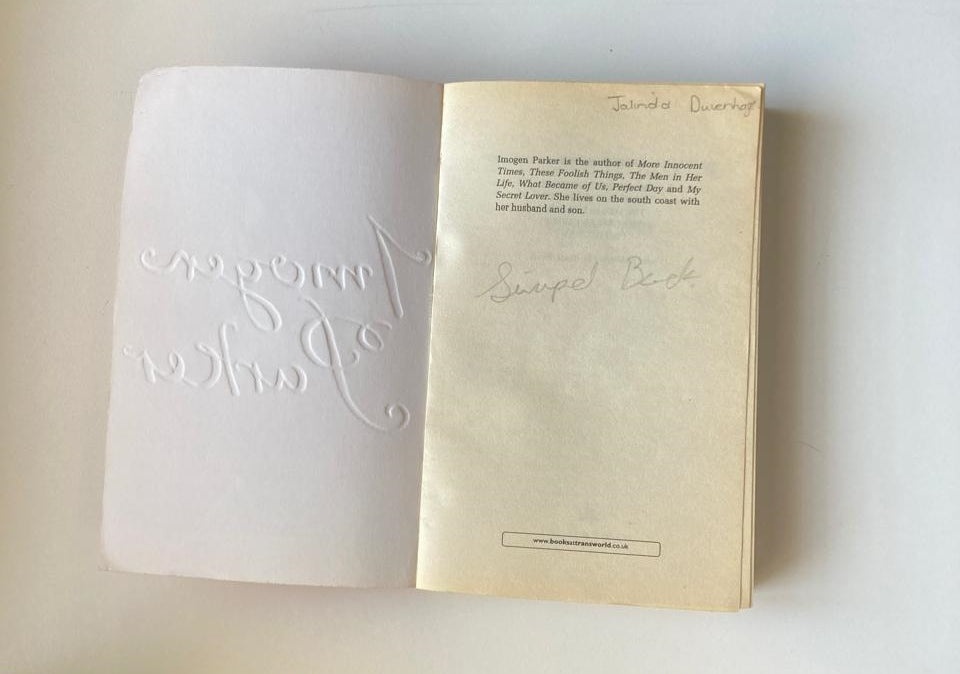 Imogen
Parker
Jalinda
Imogen Parker is the author of More Innocent
Times, These Foolish Things, The Men in Her
Life, What Became of Us, Perfect Day and My
Secret Lover. She lives on the south coast with
her husband and son.
www.booksattransworld.co.uk